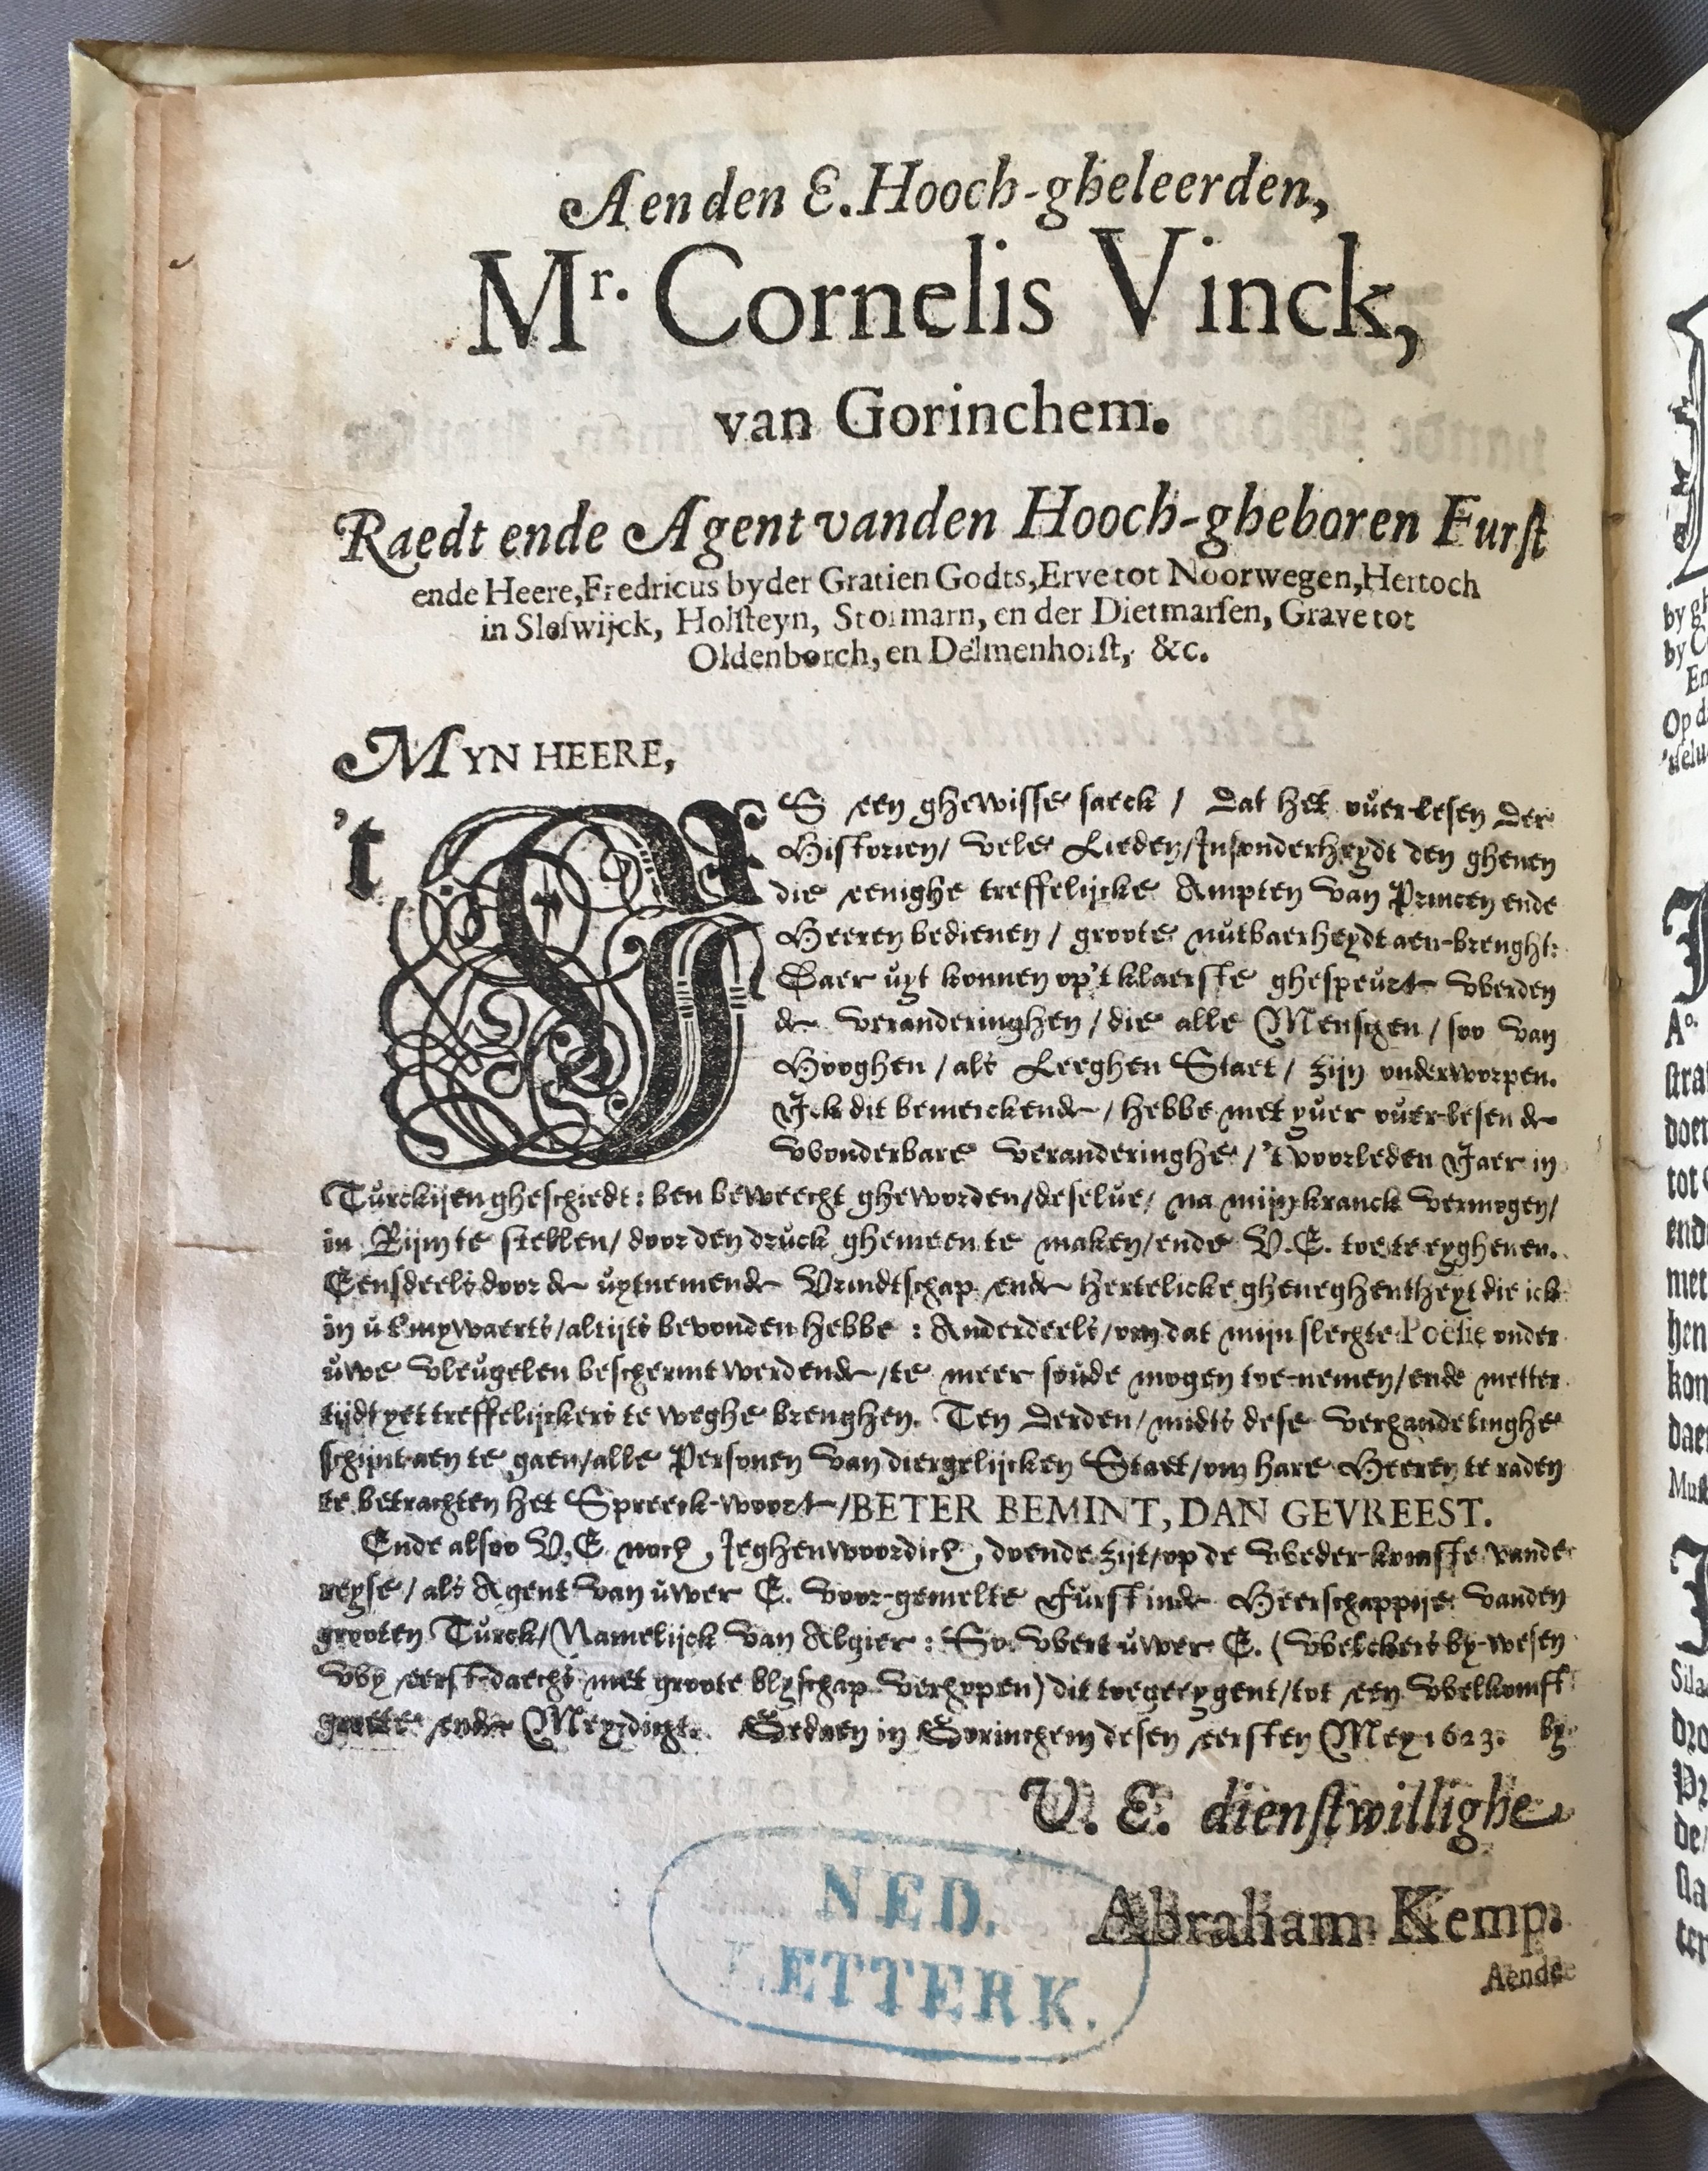 Aen den E. Hooch-gheleerden,
Mr. Cornelis Vinck,
van Gorinchem.
Raedt ende Agent vanden Hooch-gheboren Furst
ende Heere, Fredricus by der Gratien Godts, Erve tot Noorwegen, Hertoch
in Sleswijck, Holsteyn, Stormarn, en der Dietmarsen, Grave tot
Oldenborch, en Delmenhorst, &c.
MYN HEERE,
't IS een ghewisse saeck / dat het over-lesen der
Historien / vele Lieden / Insonderheydt den ghenen
die eenighe treffelijcke Ampten van Princen ende
Heeren bedienen / groote nutbaerheydt aen-brenght:
Daer uyt konnen op't klaerste ghespeurt werden
de veranderinghen / die alle Menschen / soo van
Hooghen / als Leeghen Staet / zijn onderworpen.
Ick dit bemerckende / hebbe met yver over-lesen de
wonderbare veranderinghe / 't voorleden Jaer in
Turckijen gheschiedt: ben beweecht gheworden / deselve / na mijn kranck vermogen /
in Rijm te stellen / door den druck ghemeen te maken / ende V. E. toe te eyghenen.
Eensdeels door de uytnemende Vrindtschap ende hertelicke gheneghentheyt die ick
in u t'mywaerts / altijts bevonden hebbe: Anderdeels / om dat mijn slechte Poësie onder
uwe vleugelen beschermt werdende / te meer soude mogen toe-nemen / ende metter
tijdt yet treffelijckers te weghe brenghen. Ten derden / midts dese verhandelinghe
schijnt aen te gaen / alle Personen van diergelijcken Staet / om hare Heeren te raden
te betrachten het Spreeck-woort / BETER BEMINT, DAN GEVREEST.
Ende alsoo V. E. noch Jeghenwoordich, doende zijt / op de wederkomste vande
reyse / als Agent van uwer E. voor-gemelte Furst inde Heerschappije vanden
grooten Turck / Namelijck van Algier: So wert uwer E. (welckers by-wesen
wy eerst-daechs met groote blyschap verhopen) dit toegeeygent / tot een welkomst
groete ende Meydicht. Gedaen in Gorinchem desen eersten Mey 1623. by
V. E. dienstwillighe
Abraham Kemp.
Aende
NED.
LETTERK.